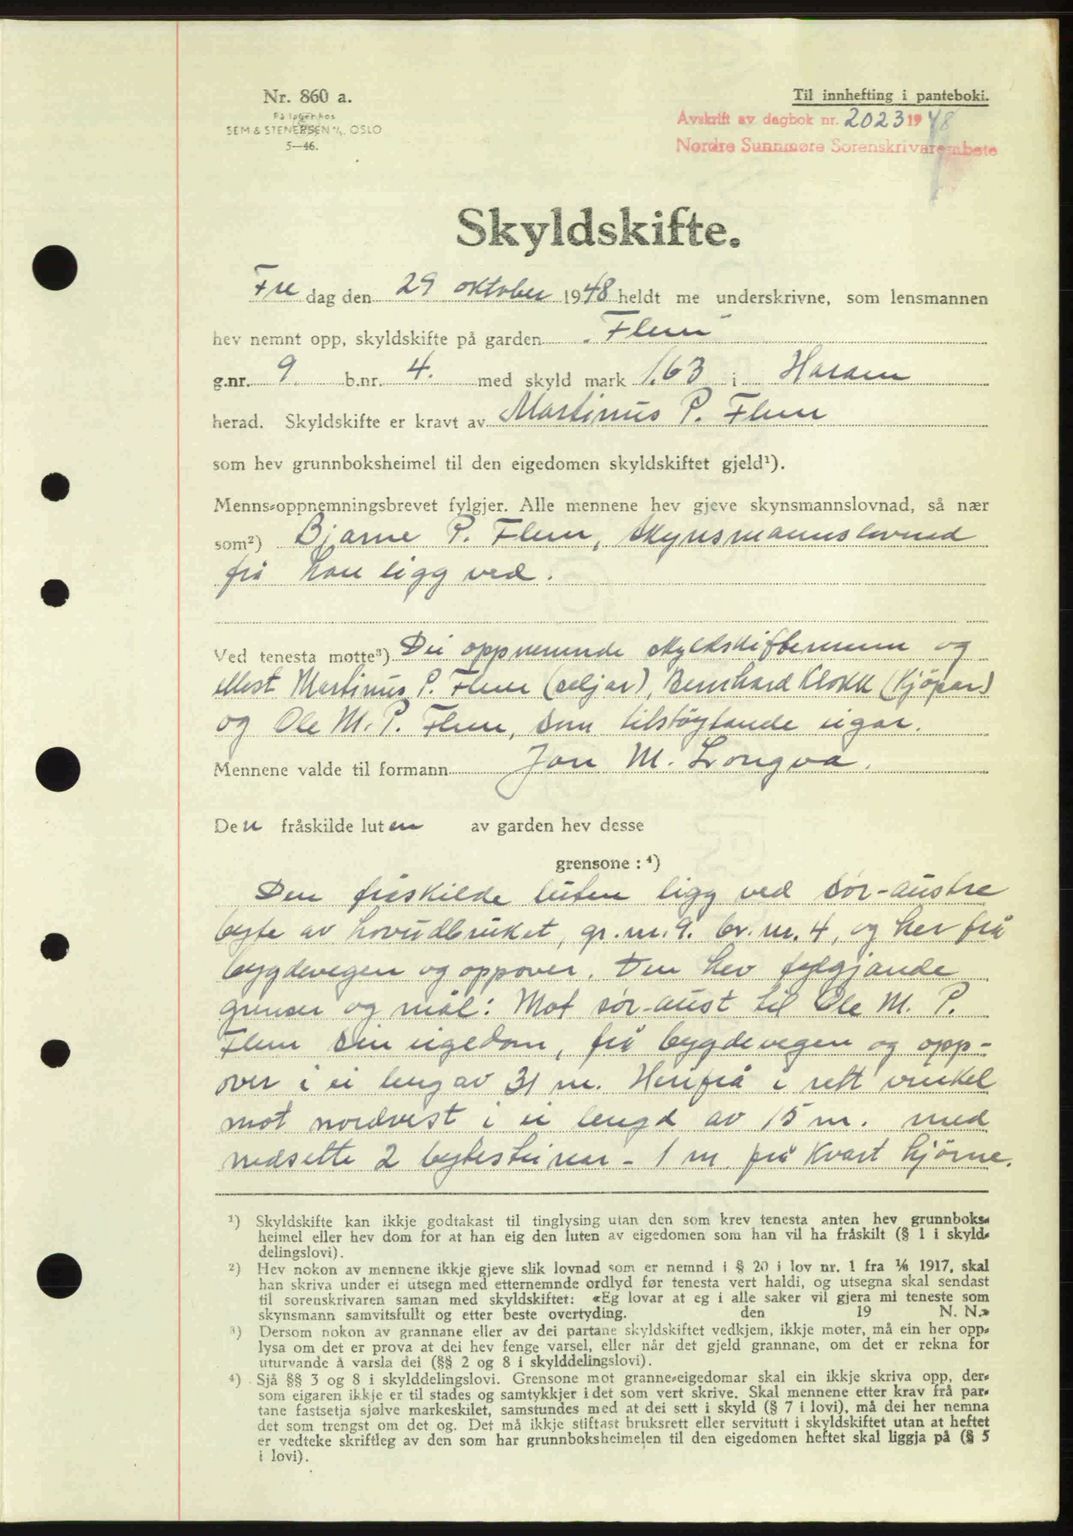 Nr. 860 a.
På lager hos
SEM & STENERSEN A/S, OSLO
5—46.
Til innhefting i panteboki.
Avskrift av dagbok nr. 2023 1948
Nordre Sunnmøre Sorenskrivarembete
Skyldskifte.
Fre dag den 29 oktober 1948 heldt me underskrivne, som lensmannen
hev nemnt opp, skyldskifte på garden "Flem"
g.nr. 9. b.nr. 4. med skyld mark 1.63 i Haram
herad. Skyldskifte er kravt av Martinus P. Flem
som hev grunnboksheimel til den eigedomen skyldskiftet gjeld¹).
Menns-oppnemningsbrevet fylgjer. Alle mennene hev gjeve skynsmannslovnad, så nær
som²) Bjarne P. Flem, skynsmannslovnad
frå han ligg ved.
Ved tenesta møtte³) Dei oppnemnde skyldskiftemenn og
ellest Martinus P. Flem (seljar), Bernhard Klokk (kjöpar)
og Ole M. P. Flem, som tilstøytande eigar.
Mennene valde til formann Jon M. Longva.
Den fråskilde luten av garden hev desse
grensone: ⁴)
Den fråskilde luten ligg ved sör-austre
byte av hovudbruket, gr.nr. 9. br.nr. 4, og her frå
bygdevegen og oppover. Den hev fylgjande
grenser og mål: Mot sör-aust til Ole M. P.
Flem sin eigedom, frå bygdevegen og opp-
over i ei leng av 31 m. Herifrå i rett vinkel
mot nordvest i ei lengd av 15 m. med
nedsette 2 bytesteinar - 1 m. frå kvart hjörne.
¹) Skyldskifte kan ikkje godtakast til tinglysing utan den som krev tenesta anten hev grunnboks-
heimel eller hev dom for at han eig den luten av eigedomen som han vil ha fråskilt (§ 1 i skyld-
delingslovi).
²) Hev nokon av mennene ikkje gjeve slik lovnad som er nemnd i § 20 i lov nr. 1 fra 1/6 1917, skal
han skriva under ei utsegn med etternemnde ordlyd før tenesta vert haldi, og utsegna skal sendast
til sorenskrivaren saman med skyldskiftet: «Eg lovar at eg i alle saker vil gjera mi teneste som
skynsmann samvitsfullt og etter beste overtyding. den 19 N. N.»
³) Dersom nokon av grannane eller av dei partane skyldskiftet vedkjem, ikkje møter, må ein her opp-
lysa om det er prova at dei hev fenge varsel, eller når det gjeld grannane, om det er rekna for
uturvande å varsla dei (§§ 2 og 8 i skylddelingslovi).
⁴) Sjå §§ 3 og 8 i skylddelingslovi. Grensone mot granne-eigedomar skal ein ikkje skriva opp, der-
som eigaren ikkje er til stades og samtykkjer i det som vert skrive. Skal mennene etter krav frå par-
tane fastsetja sjølve markeskilet, samstundes med at dei sett i skyld (§ 7 i lovi), må dei her nemna
det som trengst om det og. Det må ikkje stiftast bruksrett eller servitutt i skyldskiftet utan at heftet
er vedteke skriftleg av den som har grunnboksheimelen til den eigedomen heftet skal liggja på (§ 5
i lovi).